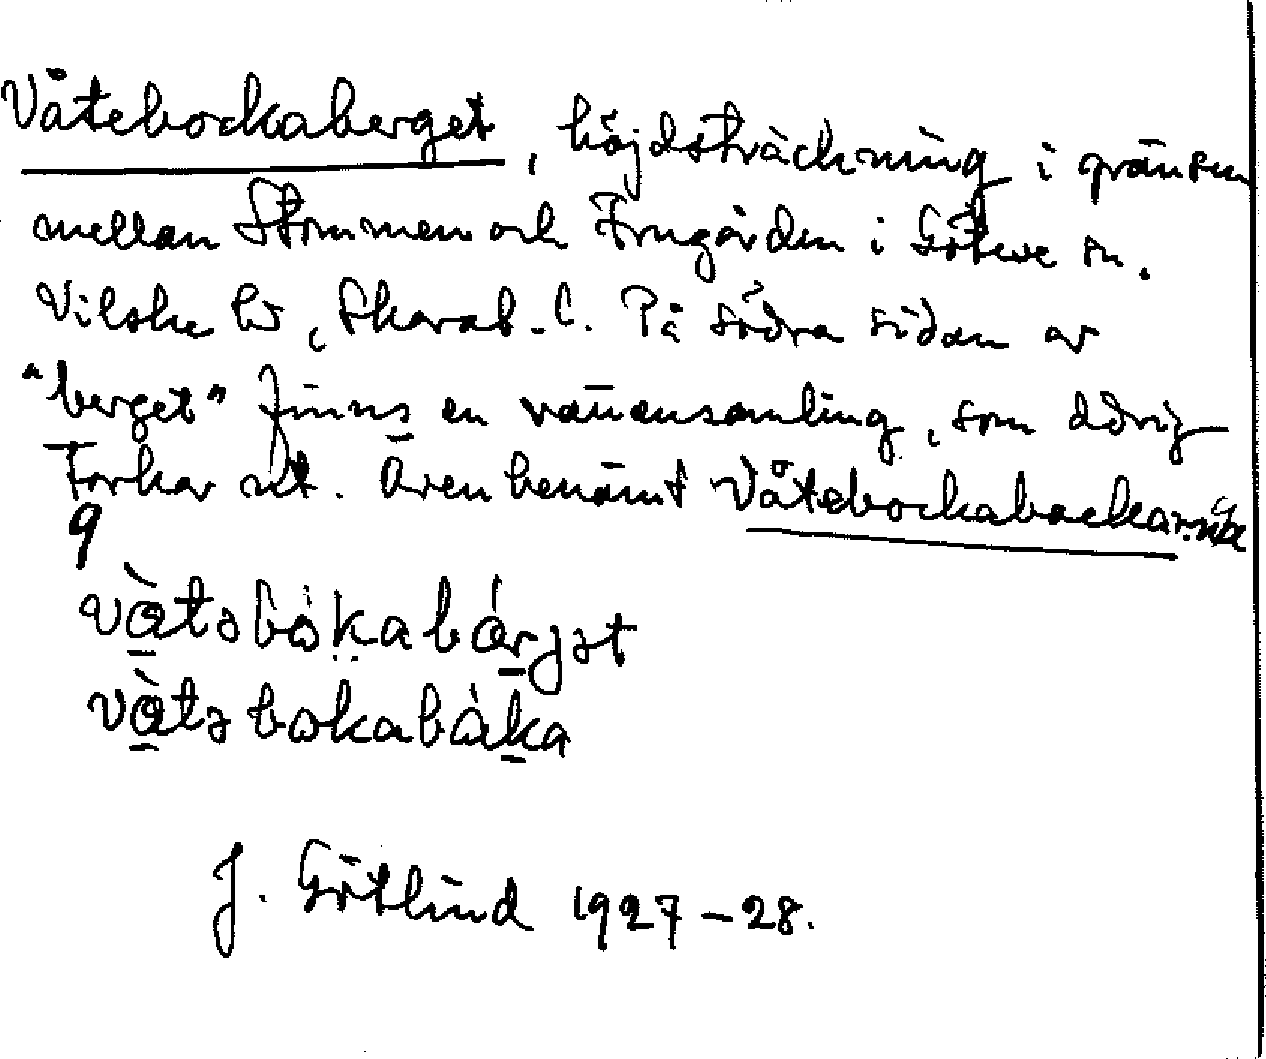 Våtebockaberget, höjdsträckning i gränsen
mellan Stommen och Frugården i Göteve sn.
Vilske hd, Skarab. l. På södra sidan av
"berget" finns en vattensamling, som aldrig
torkar ut. Även benämt Våtebockabackarna
J. Götlind 1927-28.